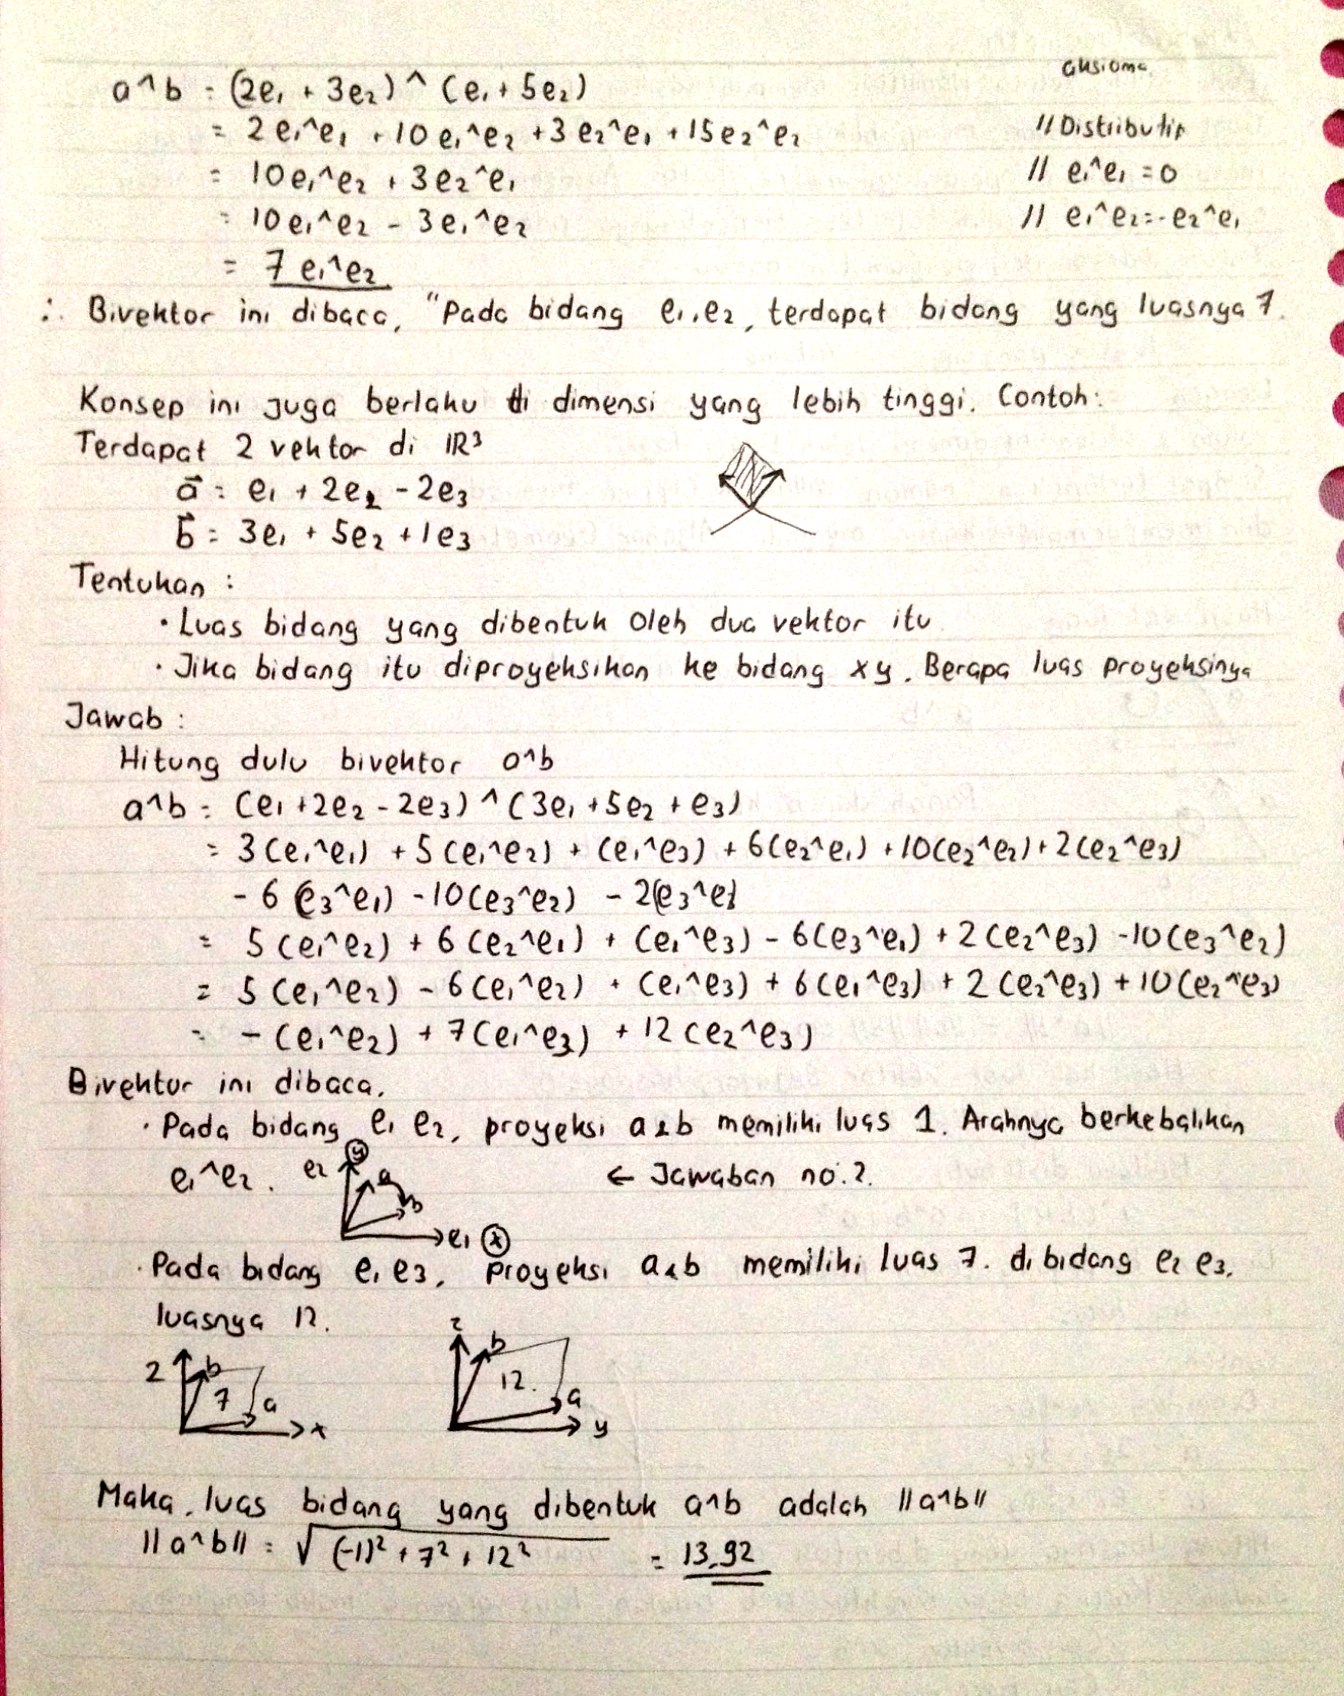 aksioma
a^b = (2e₁ + 3e₂) ^ (e₁ + 5e₂)
= 2e₁^e₁ + 10e₁^e₂ + 3e₂^e₁ + 15e₂^e₂ // Distributif
= 10e₁^e₂ + 3e₂^e₁ // e₁^e₁ = 0
= 10e₁^e₂ - 3e₁^e₂ // e₁^e₂ = -e₂^e₁
= 7 e₁^e₂
∴ Bivektor ini dibaca, "Pada bidang e₁,e₂, terdapat bidang yang luasnya 7.
Konsep ini juga berlaku di dimensi yang lebih tinggi. Contoh:
Terdapat 2 vektor di ℝ³
a⃗ = e₁ + 2e₂ - 2e₃
b⃗ = 3e₁ + 5e₂ + 1e₃
Tentukan :
· Luas bidang yang dibentuk oleh dua vektor itu
· Jika bidang itu diproyeksikan ke bidang xy. Berapa luas proyeksinya
Jawab :
Hitung dulu bivektor a^b
a^b = (e₁ + 2e₂ - 2e₃) ^ (3e₁ + 5e₂ + e₃)
= 3(e₁^e₁) + 5(e₁^e₂) + (e₁^e₃) + 6(e₂^e₁) + 10(e₂^e₂) + 2(e₂^e₃)
- 6(e₃^e₁) - 10(e₃^e₂) - 2(e₃^e₃)
= 5(e₁^e₂) + 6(e₂^e₁) + (e₁^e₃) - 6(e₃^e₁) + 2(e₂^e₃) - 10(e₃^e₂)
= 5(e₁^e₂) - 6(e₁^e₂) + (e₁^e₃) + 6(e₁^e₃) + 2(e₂^e₃) + 10(e₂^e₃)
= -(e₁^e₂) + 7(e₁^e₃) + 12(e₂^e₃)
Bivektor ini dibaca,
· Pada bidang e₁ e₂, proyeksi a&b memiliki luas 1. Arahnya berkebalikan
e₁^e₂. ← Jawaban no.2.
y
e₂
a
b
e₁ x
· Pada bidang e₁ e₃, proyeksi a&b memiliki luas 7. di bidang e₂ e₃,
luasnya 12.
z b 7 a x
z b 12. a y
Maka, luas bidang yang dibentuk a^b adalah ||a^b||
||a^b|| = √(-1)² + 7² + 12² = 13,92